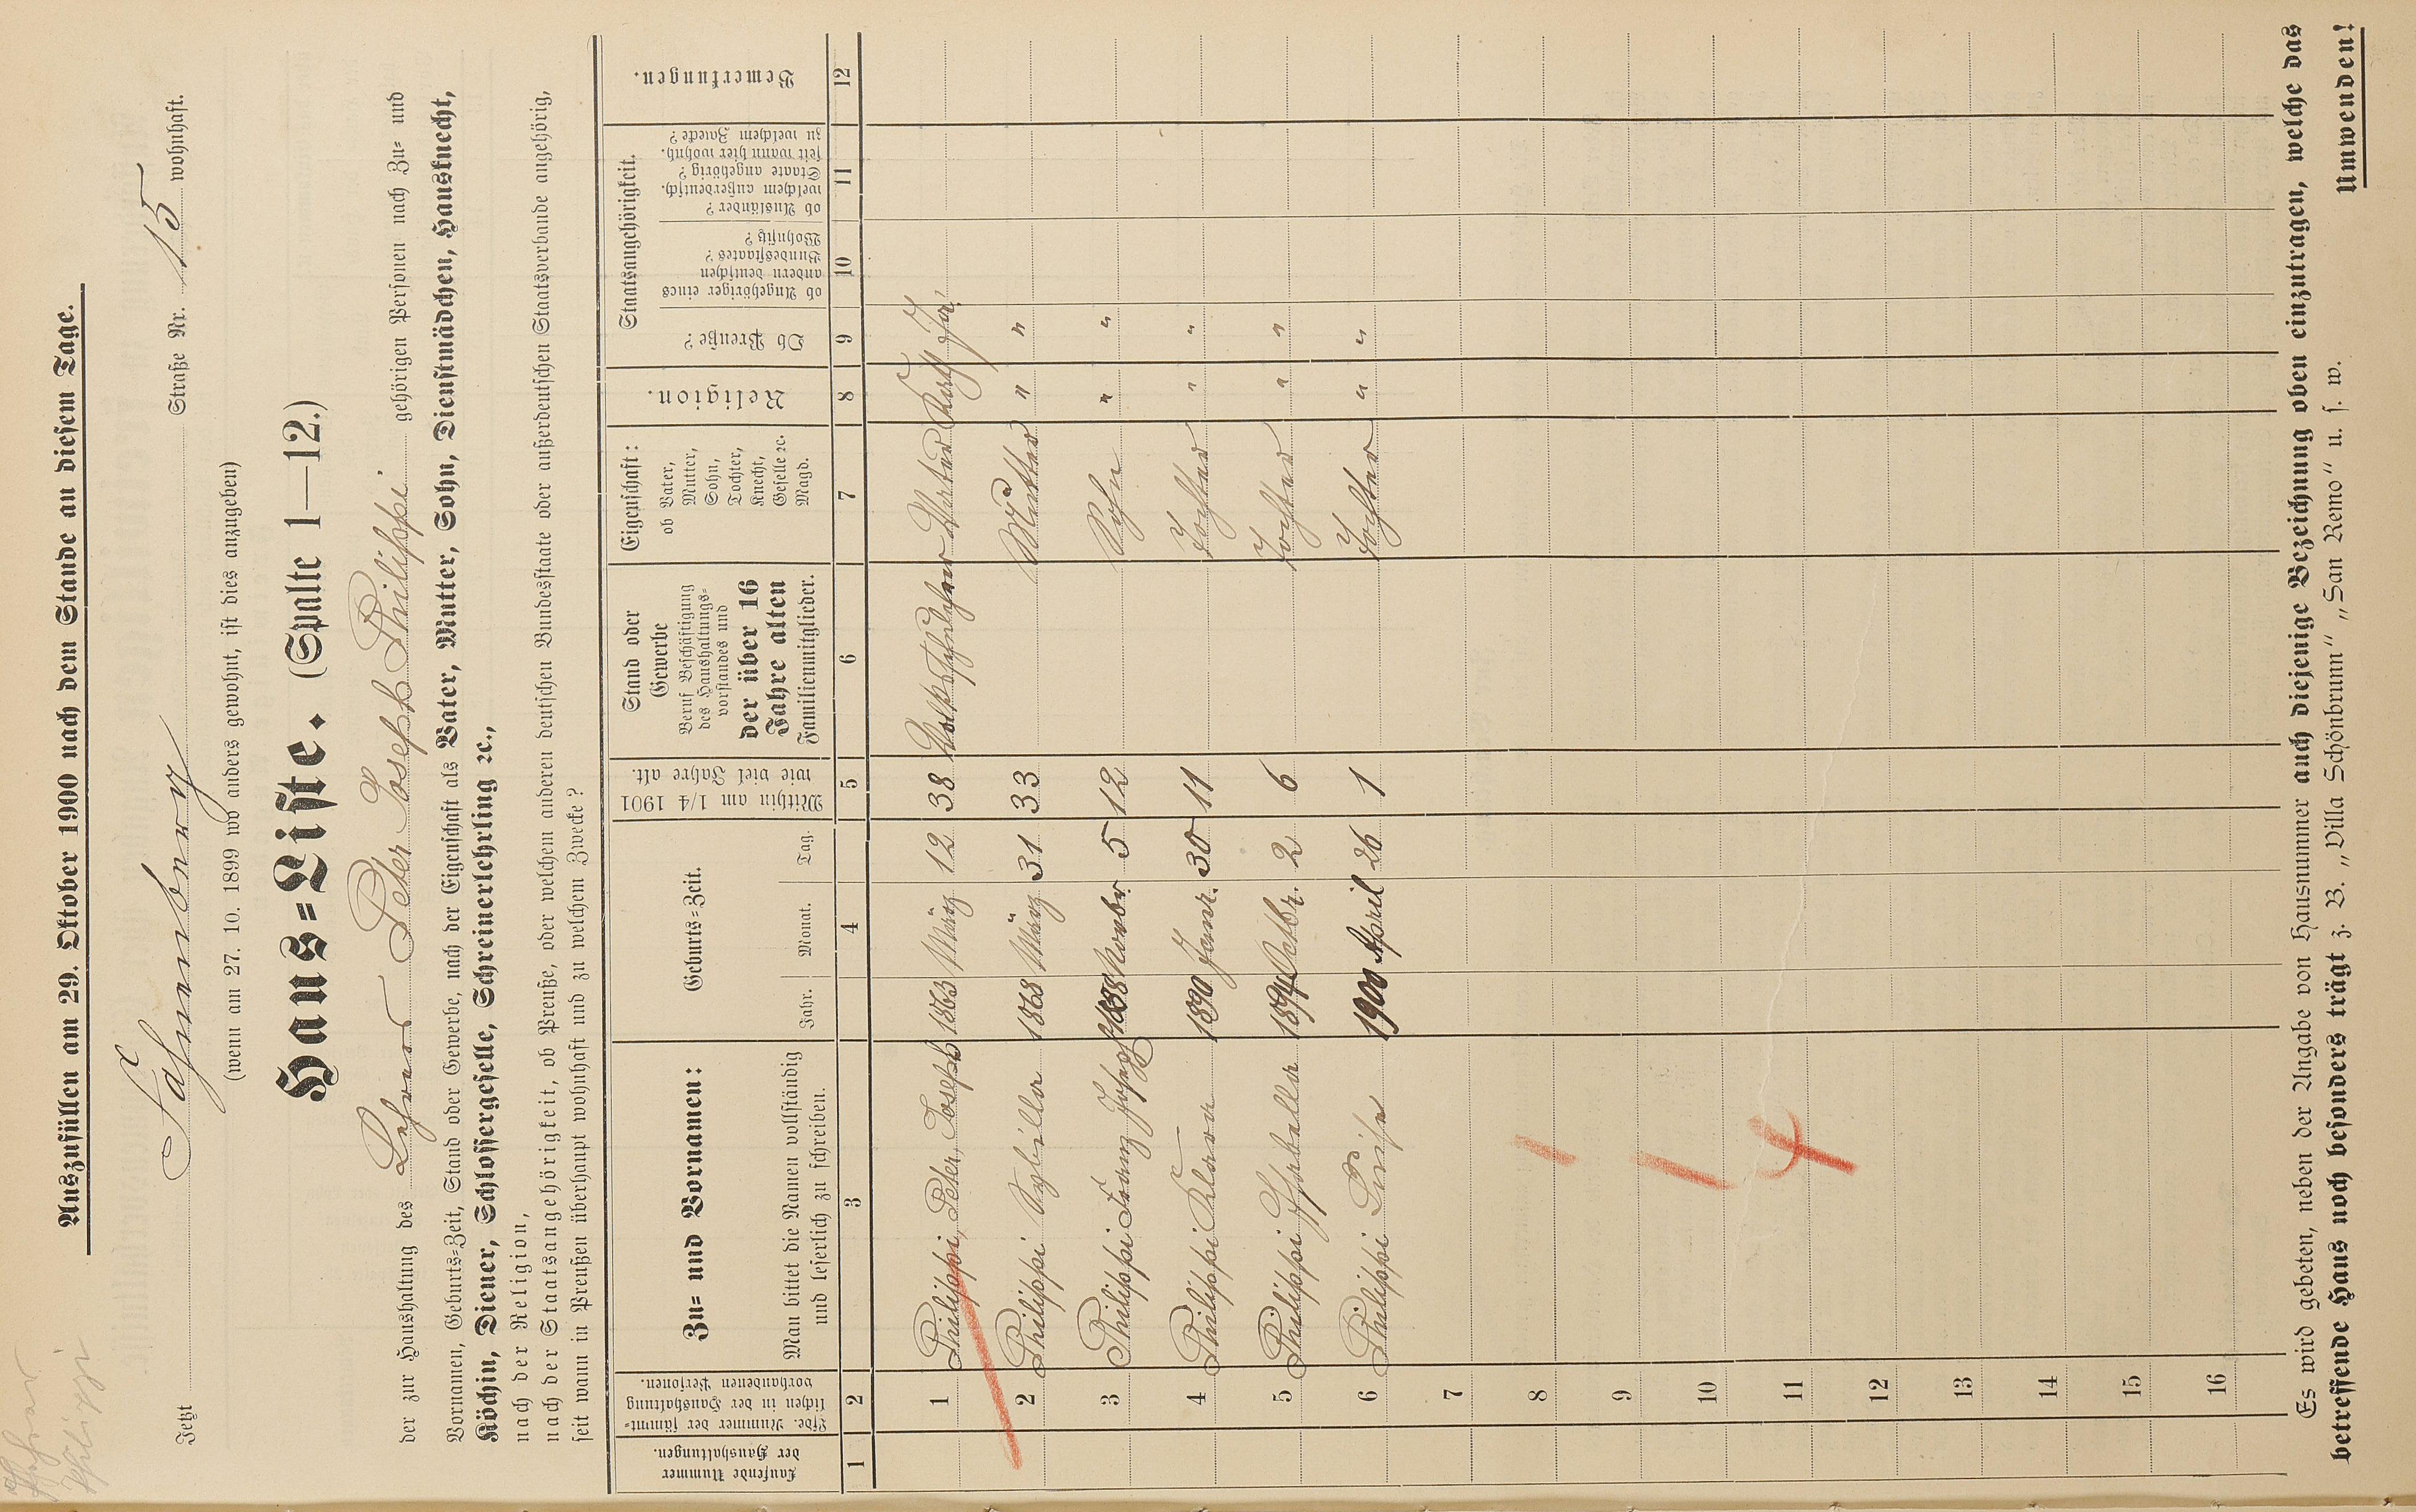 Lehrer
Philippi
Auszufüllen am 29. Oktober 1900 nach dem Stande an diesem Tage.
Jetzt Fahrenberg Straße Nr. 15 wohnhaft.
(wenn am 27. 10. 1899 wo anders gewohnt, ist dies anzugeben)
Haus=Liste. (Spalte 1—12.)
der zur Haushaltung des Lehrer Peter Joseph Philippi gehörigen Personen nach Zu= und
Vornamen, Geburts=Zeit, Stand oder Gewerbe, nach der Eigenschaft als Vater, Mutter, Sohn, Dienstmädchen, Hausknecht,
Köchin, Diener, Schlossergeselle, Schreinerlehrling ꝛc.,
nach der Religion,
nach der Staatsangehörigkeit, ob Preuße, oder welchem anderen deutschen Bundesstaate oder außerdeutschen Staatsverbande angehörig,
seit wann in Preußen überhaupt wohnhaft und zu welchem Zwecke?
Laufende Nummer
der Haushaltungen.
Lfde. Nummer der sämmt=
lichen in der Haushaltung
vorhandenen Personen.
Zu= und Vornamen:
Man bittet die Namen vollständig
und leserlich zu schreiben.
Geburts=Zeit.
Jahr. Monat. Tag.
Mithin am 1/4 1901
wie viel Jahre alt.
Stand oder
Gewerbe
Beruf Beschäftigung
des Haushaltungs=
vorstandes und
der über 16
Jahre alten
Familienmitglieder.
Eigenschaft:
ob Vater,
Mutter,
Sohn,
Tochter,
Knecht,
Geselle ꝛc.
Magd.
Religion.
Staatsangehörigkeit.
Ob Preuße?
ob Angehöriger eines
andern deutschen
Bundesstaates?
Wohnsitz?
ob Ausländer?
welchem außerdeutsch.
Staate angehörig?
seit wann hier wohnh.
zu welchem Zwecke?
Bemerkungen.
1 2 3 4 5 6 7 8 9 10 11 12
1 Philippi, Peter, Joseph 1863 März 12 38 Volksschullehrer Vater Kath Ja!
2 Philippi Sybilla 1868 März 31 33 Mutter " "
3 Philippi Franz Joseph 1888 Novbr. 5 12 Sohn " "
4 Philippi Klara 1890 Janr. 30 11 Tochter " "
5 Philippi Isabella 1894 Octbr. 2 6 Tochter " "
6 Philippi Luise 1900 April 26 1 Tochter " "
7
8
9
10
11
12
13
14
15
16
1
1
4
Es wird gebeten, neben der Angabe von Hausnummer auch diejenige Bezeichnung oben einzutragen, welche das
betreffende Haus noch besonders trägt z. B. „Villa Schönbrunn“ „San Remo“ u. s. w.
Umwenden!